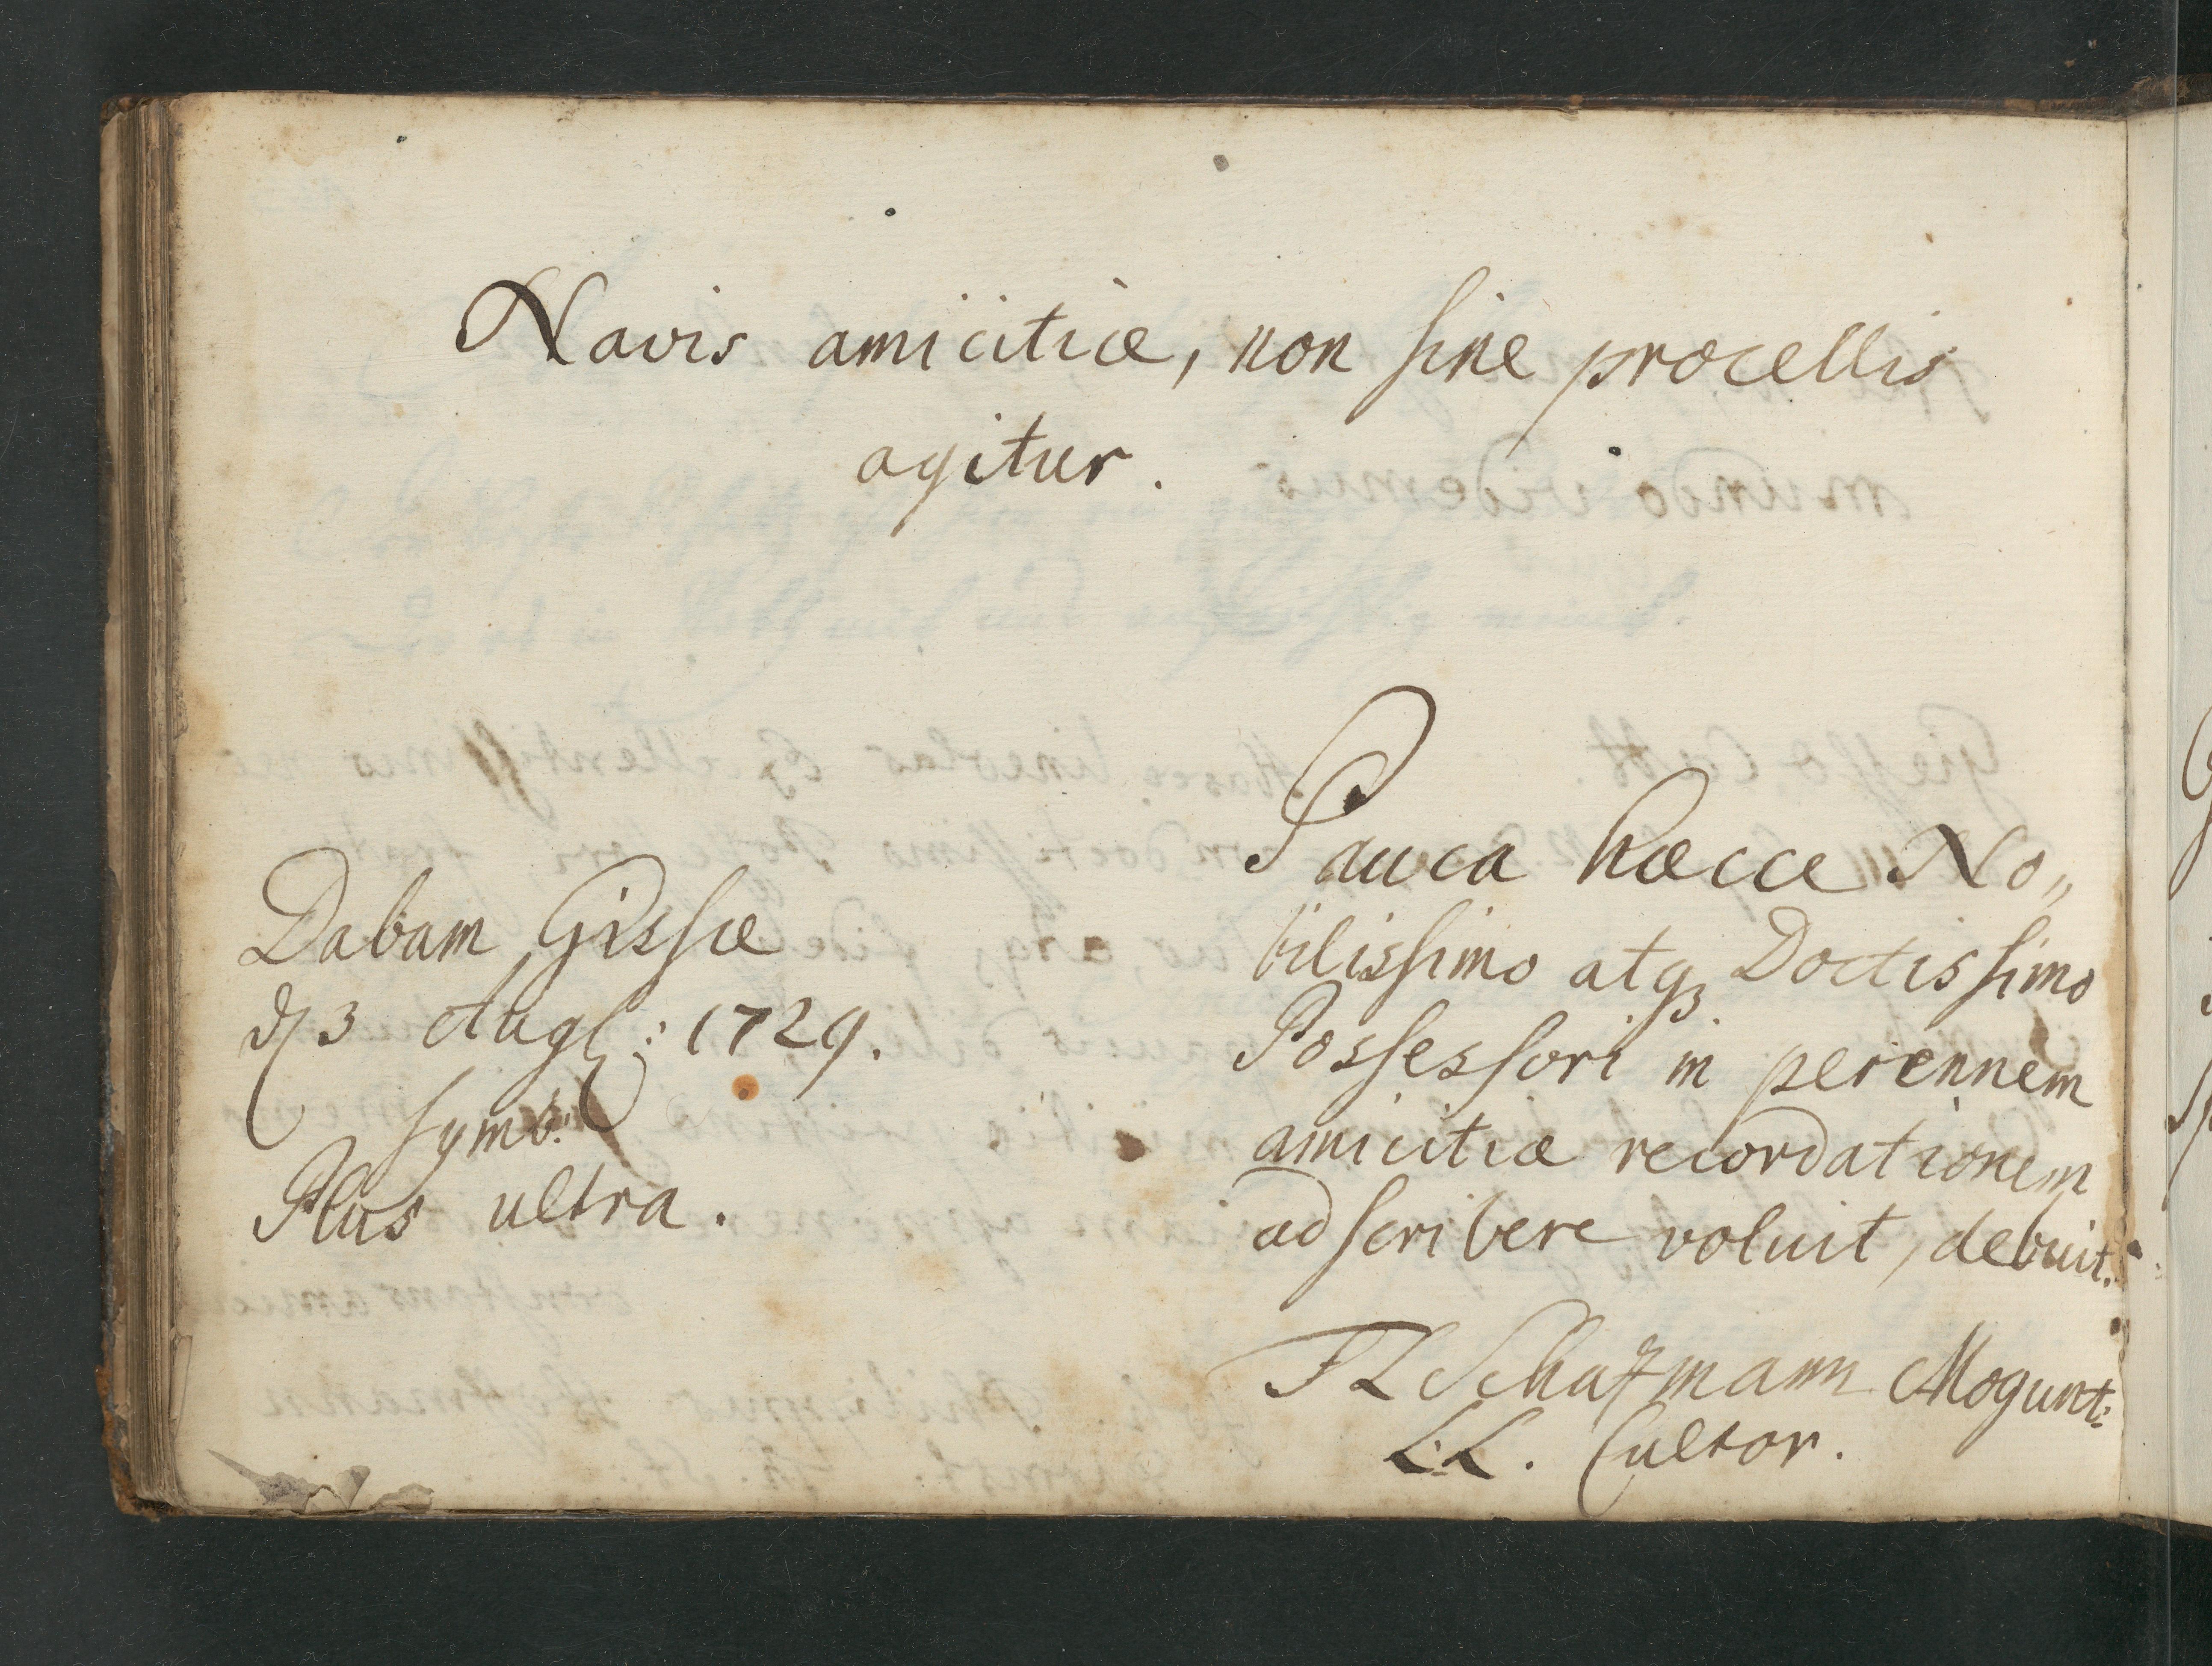 Navis amicitiæ, non sine procellis
agitur.
Dabam Gissæ
d 3 Aug: 1729.
Symb:
Plus ultra.
Pauca hæcce No„
bilissimo atq₃ Doctissimo
Possessori in perennem
amicitiæ recordationem
adscribere voluit, debuit.
FL Schazmann Mogunt:
LL. Cultor.